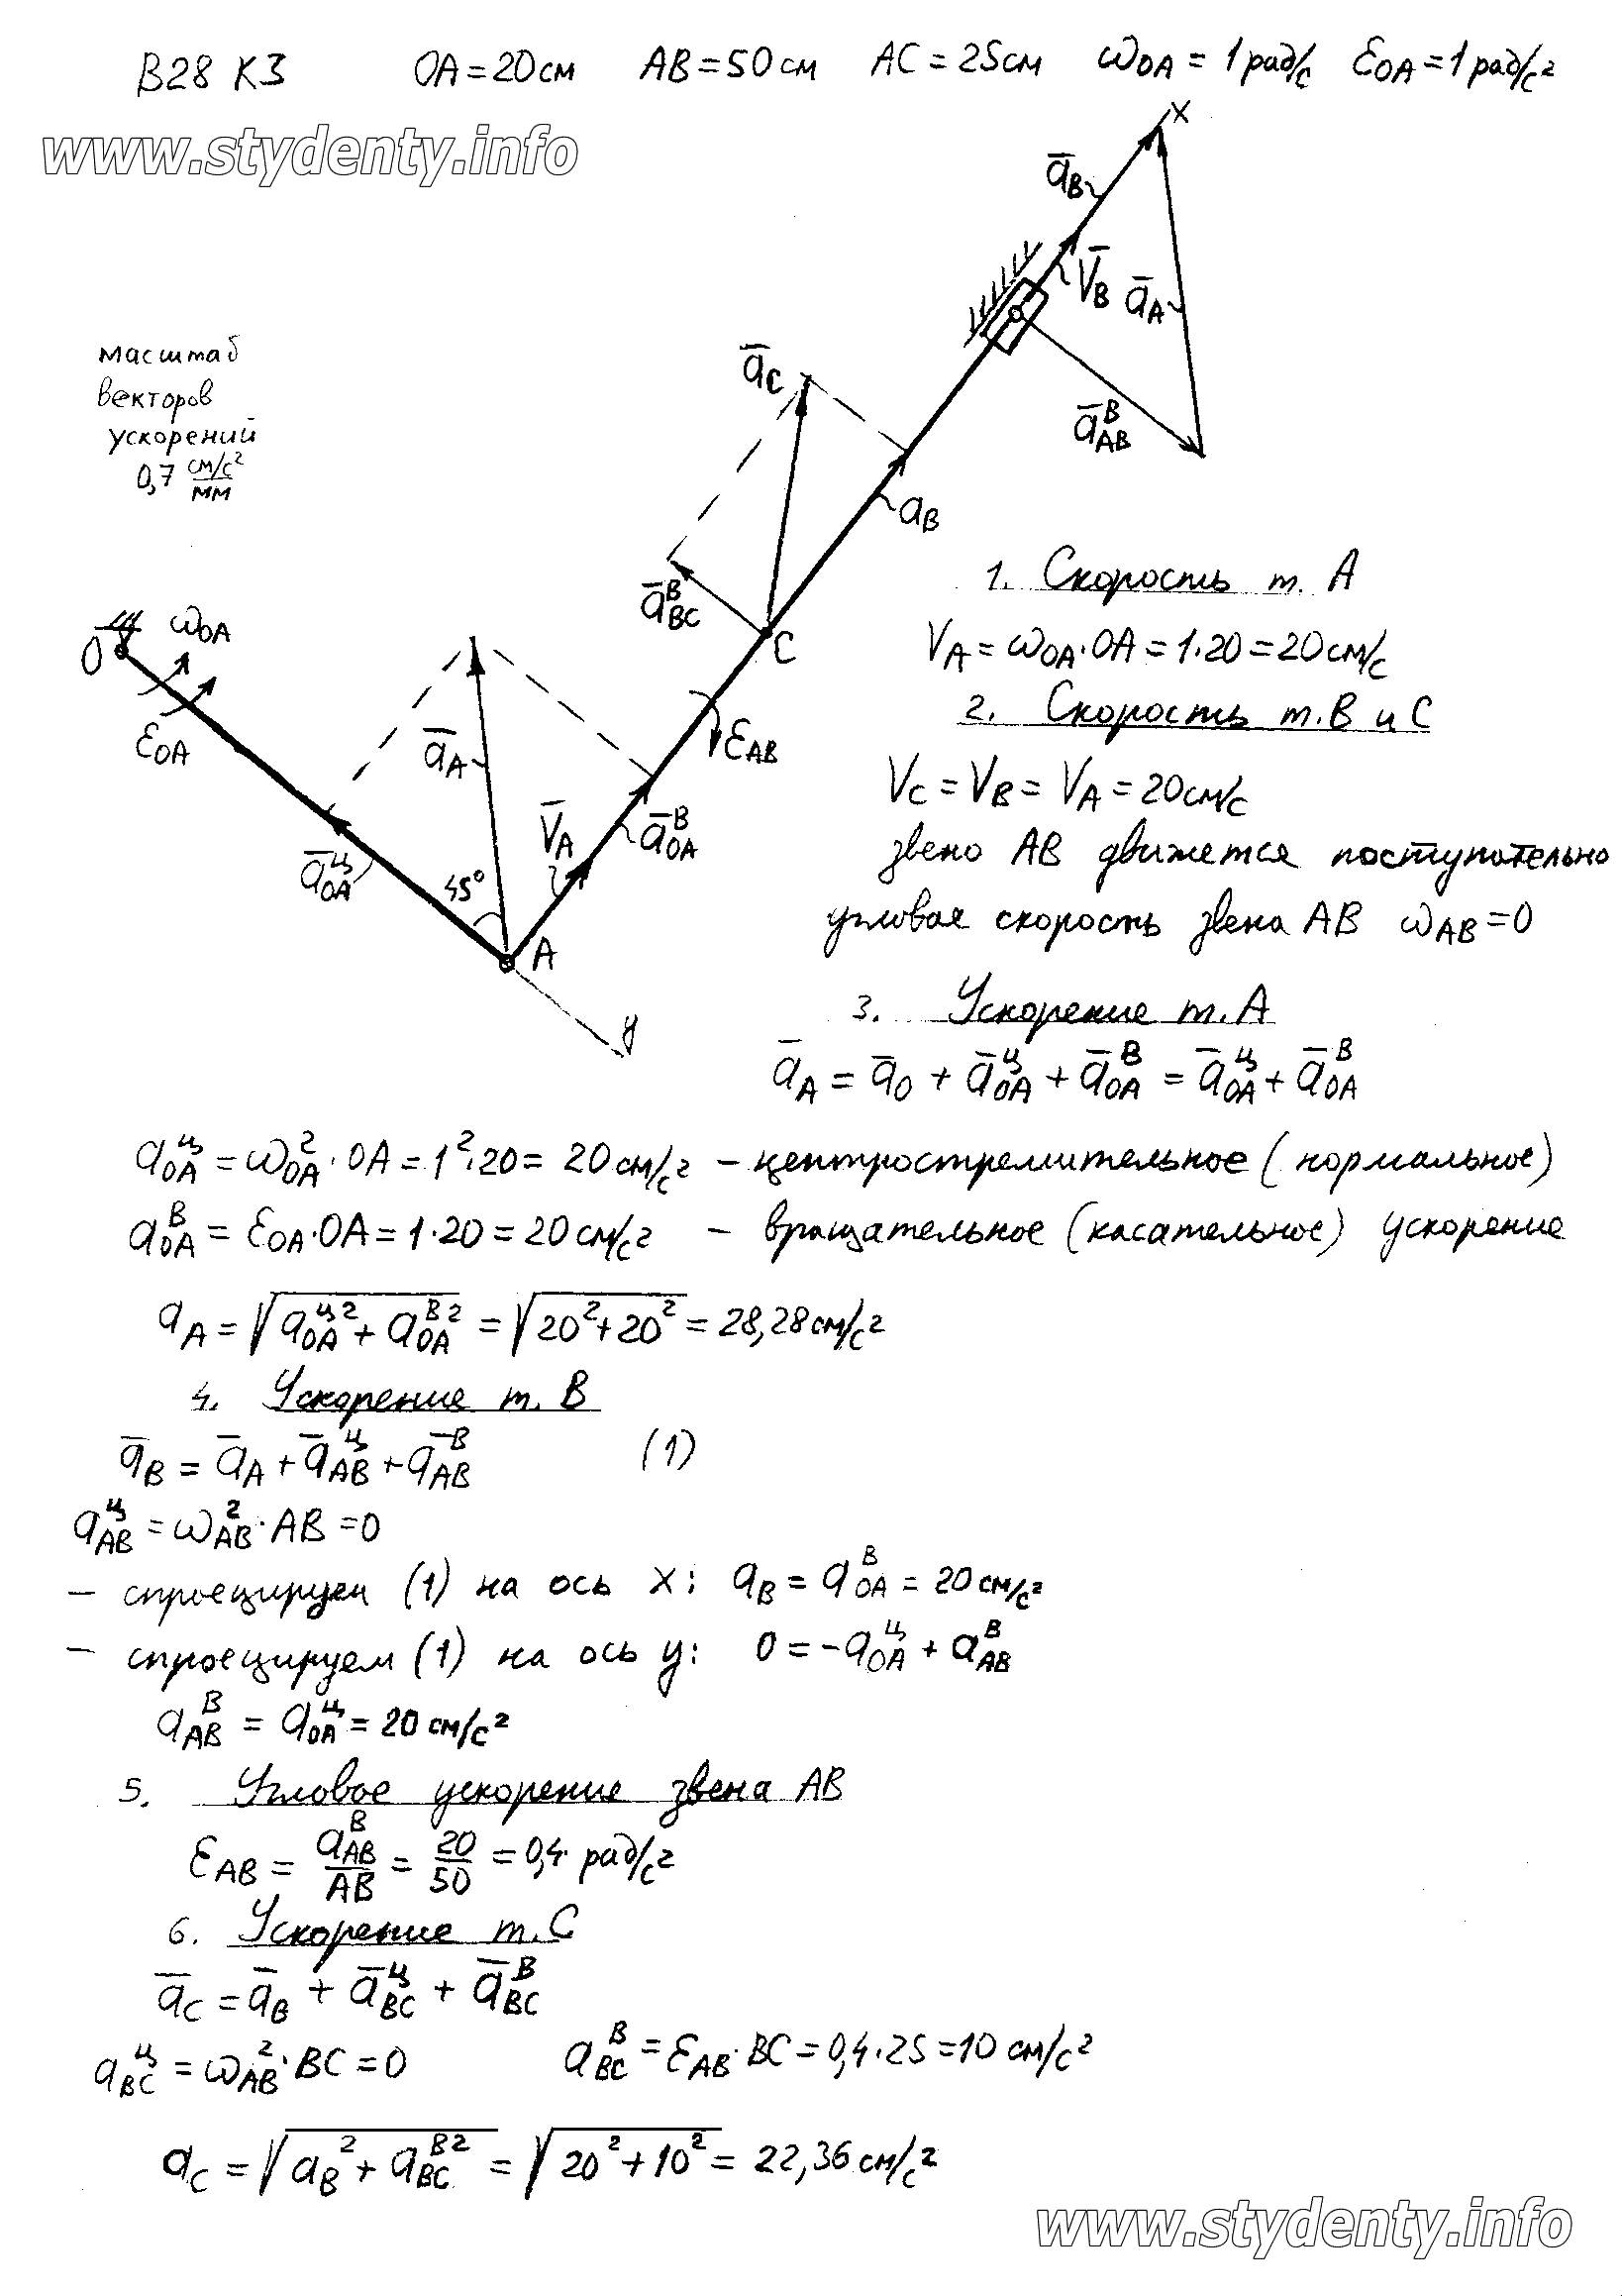 В28 К3 OA=20см AB=50см AC=25см ω_OA=1рад/с ε_OA=1рад/с²
www.stydenty.info
X
ā_B
V̄_B
ā_A
ā_C
ā^B_AB
масштаб
векторов
ускорений
0,7 см/с²/мм
a_B
ā^B_BC
C
O
ω_OA
ε_OA
ā_A
ε_AB
V̄_A
ā^B_OA
ā^ц_OA
45°
A
y
1. Скорость т. A
V_A=ω_OA·OA=1·20=20см/с
2. Скорость т.B и C
V_C=V_B=V_A=20см/с
звено AB движется поступательно
угловая скорость звена AB ω_AB=0
3. Ускорение т.A
ā_A=ā_O+ā^ц_OA+ā^B_OA=ā^ц_OA+ā^B_OA
a^ц_OA=ω²_OA·OA=1²·20=20см/с² – центростремительное (нормальное)
a^B_OA=ε_OA·OA=1·20=20см/с² – вращательное (касательное) ускорение
a_A=√(a^ц2_OA+a^B2_OA)=√(20²+20²)=28,28см/с²
4. Ускорение т. B
ā_B=ā_A+ā^ц_AB+ā^B_AB (1)
a^ц_AB=ω²_AB·AB=0
– спроецируем (1) на ось X: a_B=a^B_OA=20см/с²
– спроецируем (1) на ось y: 0=-a^ц_OA+a^B_AB
a^B_AB=a^ц_OA=20см/с²
5. Угловое ускорение звена AB
ε_AB=a^B_AB/AB=20/50=0,4 рад/с²
6. Ускорение т.C
ā_C=ā_B+ā^ц_BC+ā^B_BC
a^ц_BC=ω²_AB·BC=0 a^B_BC=ε_AB·BC=0,4·25=10 см/с²
a_C=√(a_B²+a^B2_BC)=√(20²+10²)=22,36см/с²
www.stydenty.info